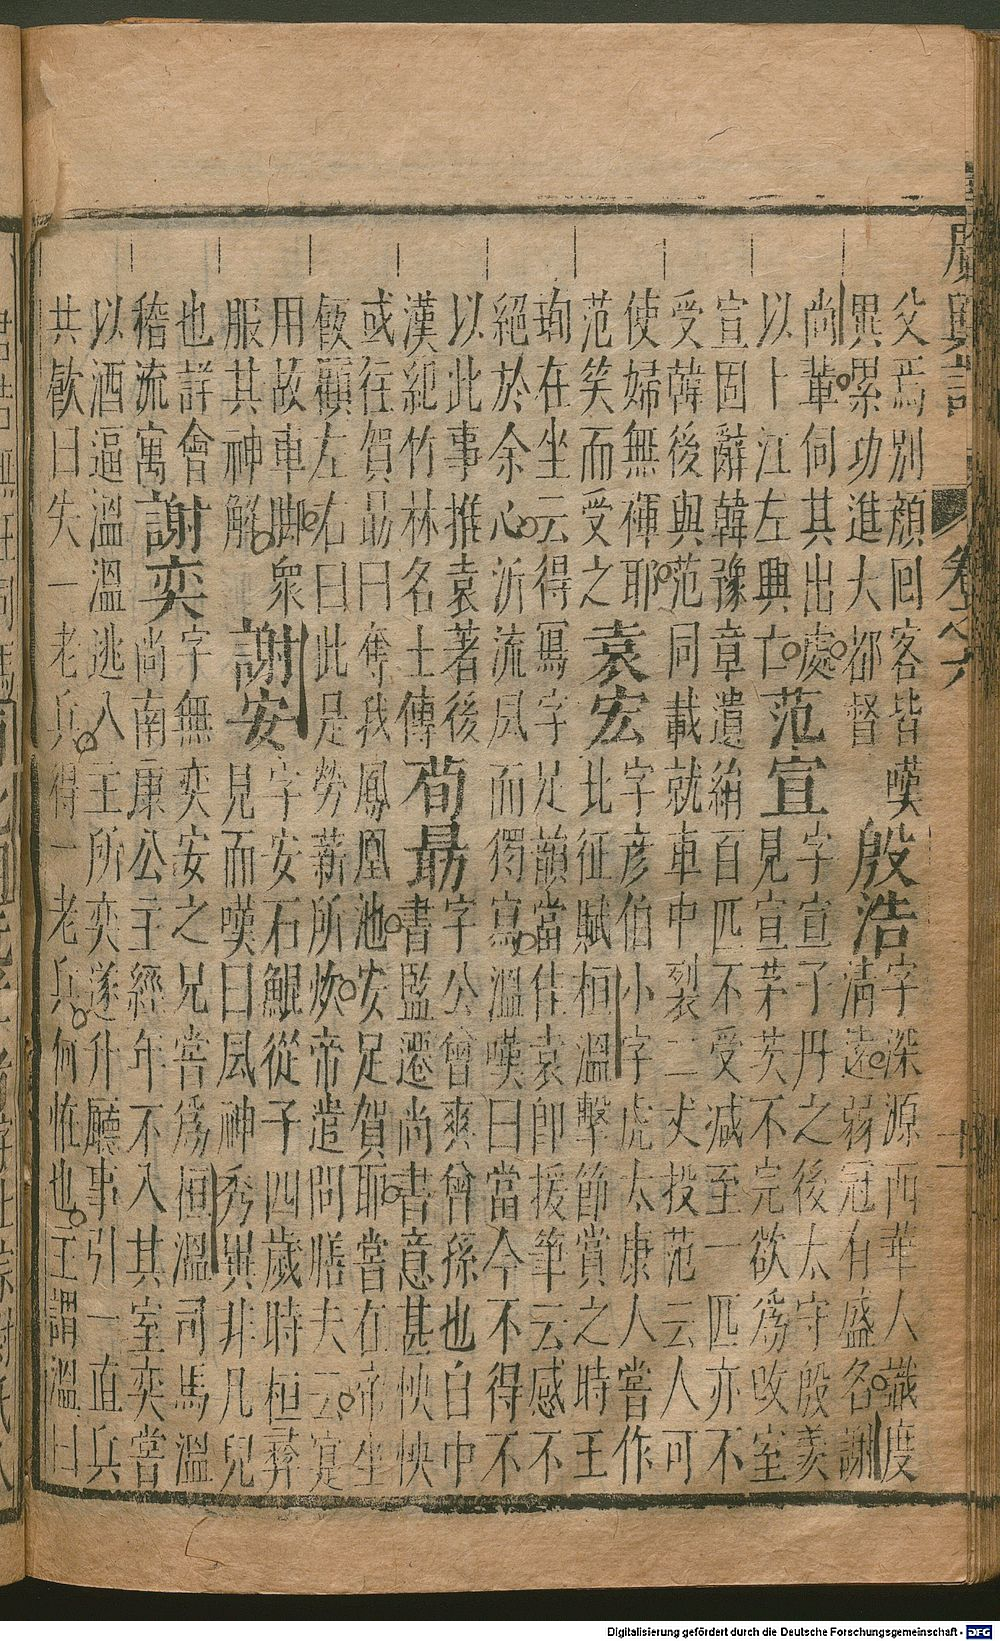 廣輿記 卷之六
父焉別顏回客皆嘆
異累功進大都督
殷浩
字深源西華人識度
清遠弱冠有盛名謝
尚輩伺其出處
以卜江左興亡
范宣
字宣子丹之後太守殷羨
見宣茅茨不完欲爲改室
宣固辭韓豫章遺絹百匹不受减至一匹亦不
受韓後與范同載就車中裂二丈投范云人可
使婦無褌耶
范笑而受之
袁宏
字彥伯小字虎太康人嘗作
北征賦桓溫擊節賞之時王
珣在坐云得寫字足韻當佳袁卽援筆云感不
絕於余心泝流風而獨寫溫嘆曰當今不得不
以此事推袁著後
漢紀竹林名士傳
荀勗
字公曾爽曾孫也自中
書監遷尚書意甚怏怏
或往賀勗曰奪我鳳凰池安足賀耶嘗在帝坐
飯顧左右曰此是勞薪所炊帝遣問膳夫云寔
用故車脚衆
服其神解
謝安
字安石鯤從子四歲時桓彝
見而嘆曰風神秀異非凡兒
也詳會
稽流寓
謝奕
字無奕安之兄嘗爲桓溫司馬溫
尚南康公主經年不入其室奕嘗
以酒逼溫溫逃入主所奕遂升廳事引一直兵
共飲曰失一老兵得一老兵何恠也主謂溫曰
Digitalisierung gefördert durch die Deutsche Forschungsgemeinschaft - DFG